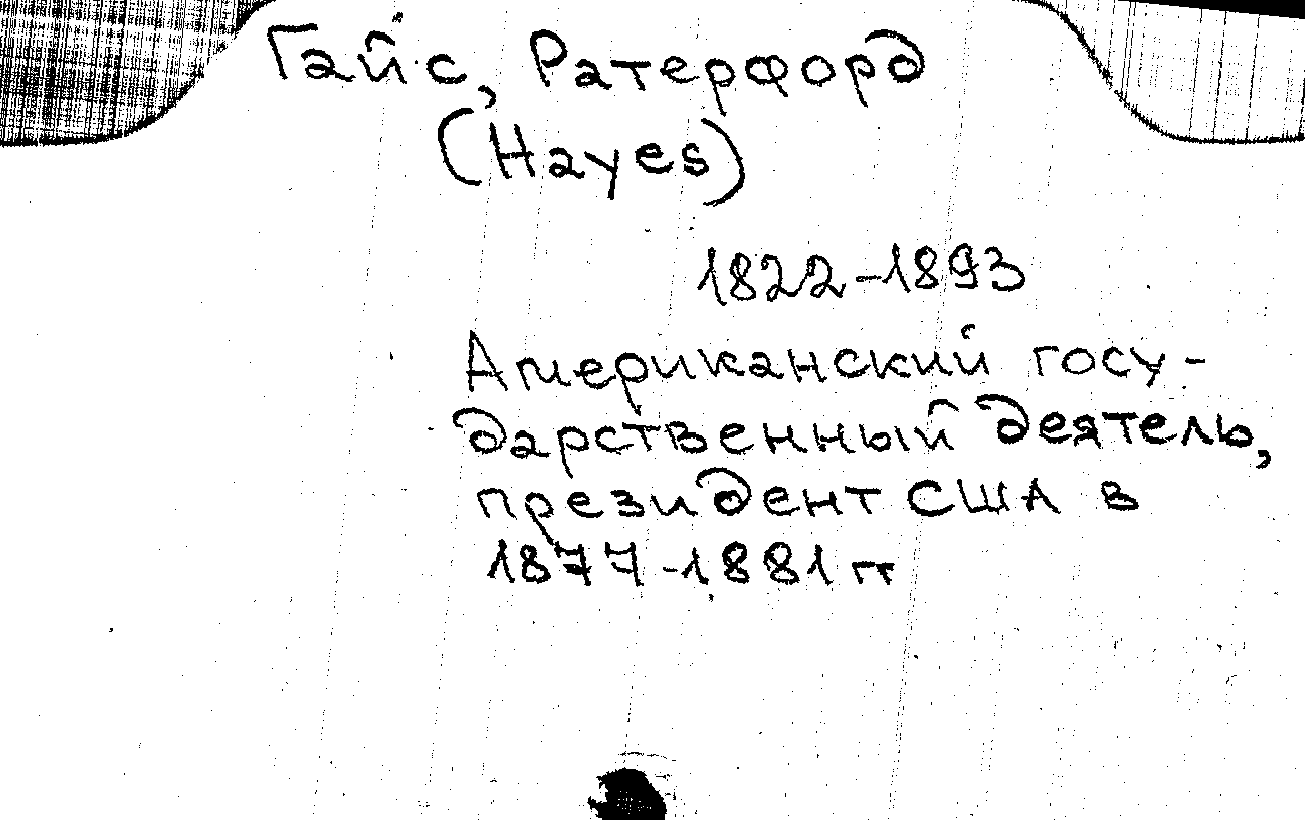 Гайс, Ратерфорд
(Hayes)
1822-1893
Американский госу-
дарственный деятель,
президент США в
1877-1881 гг